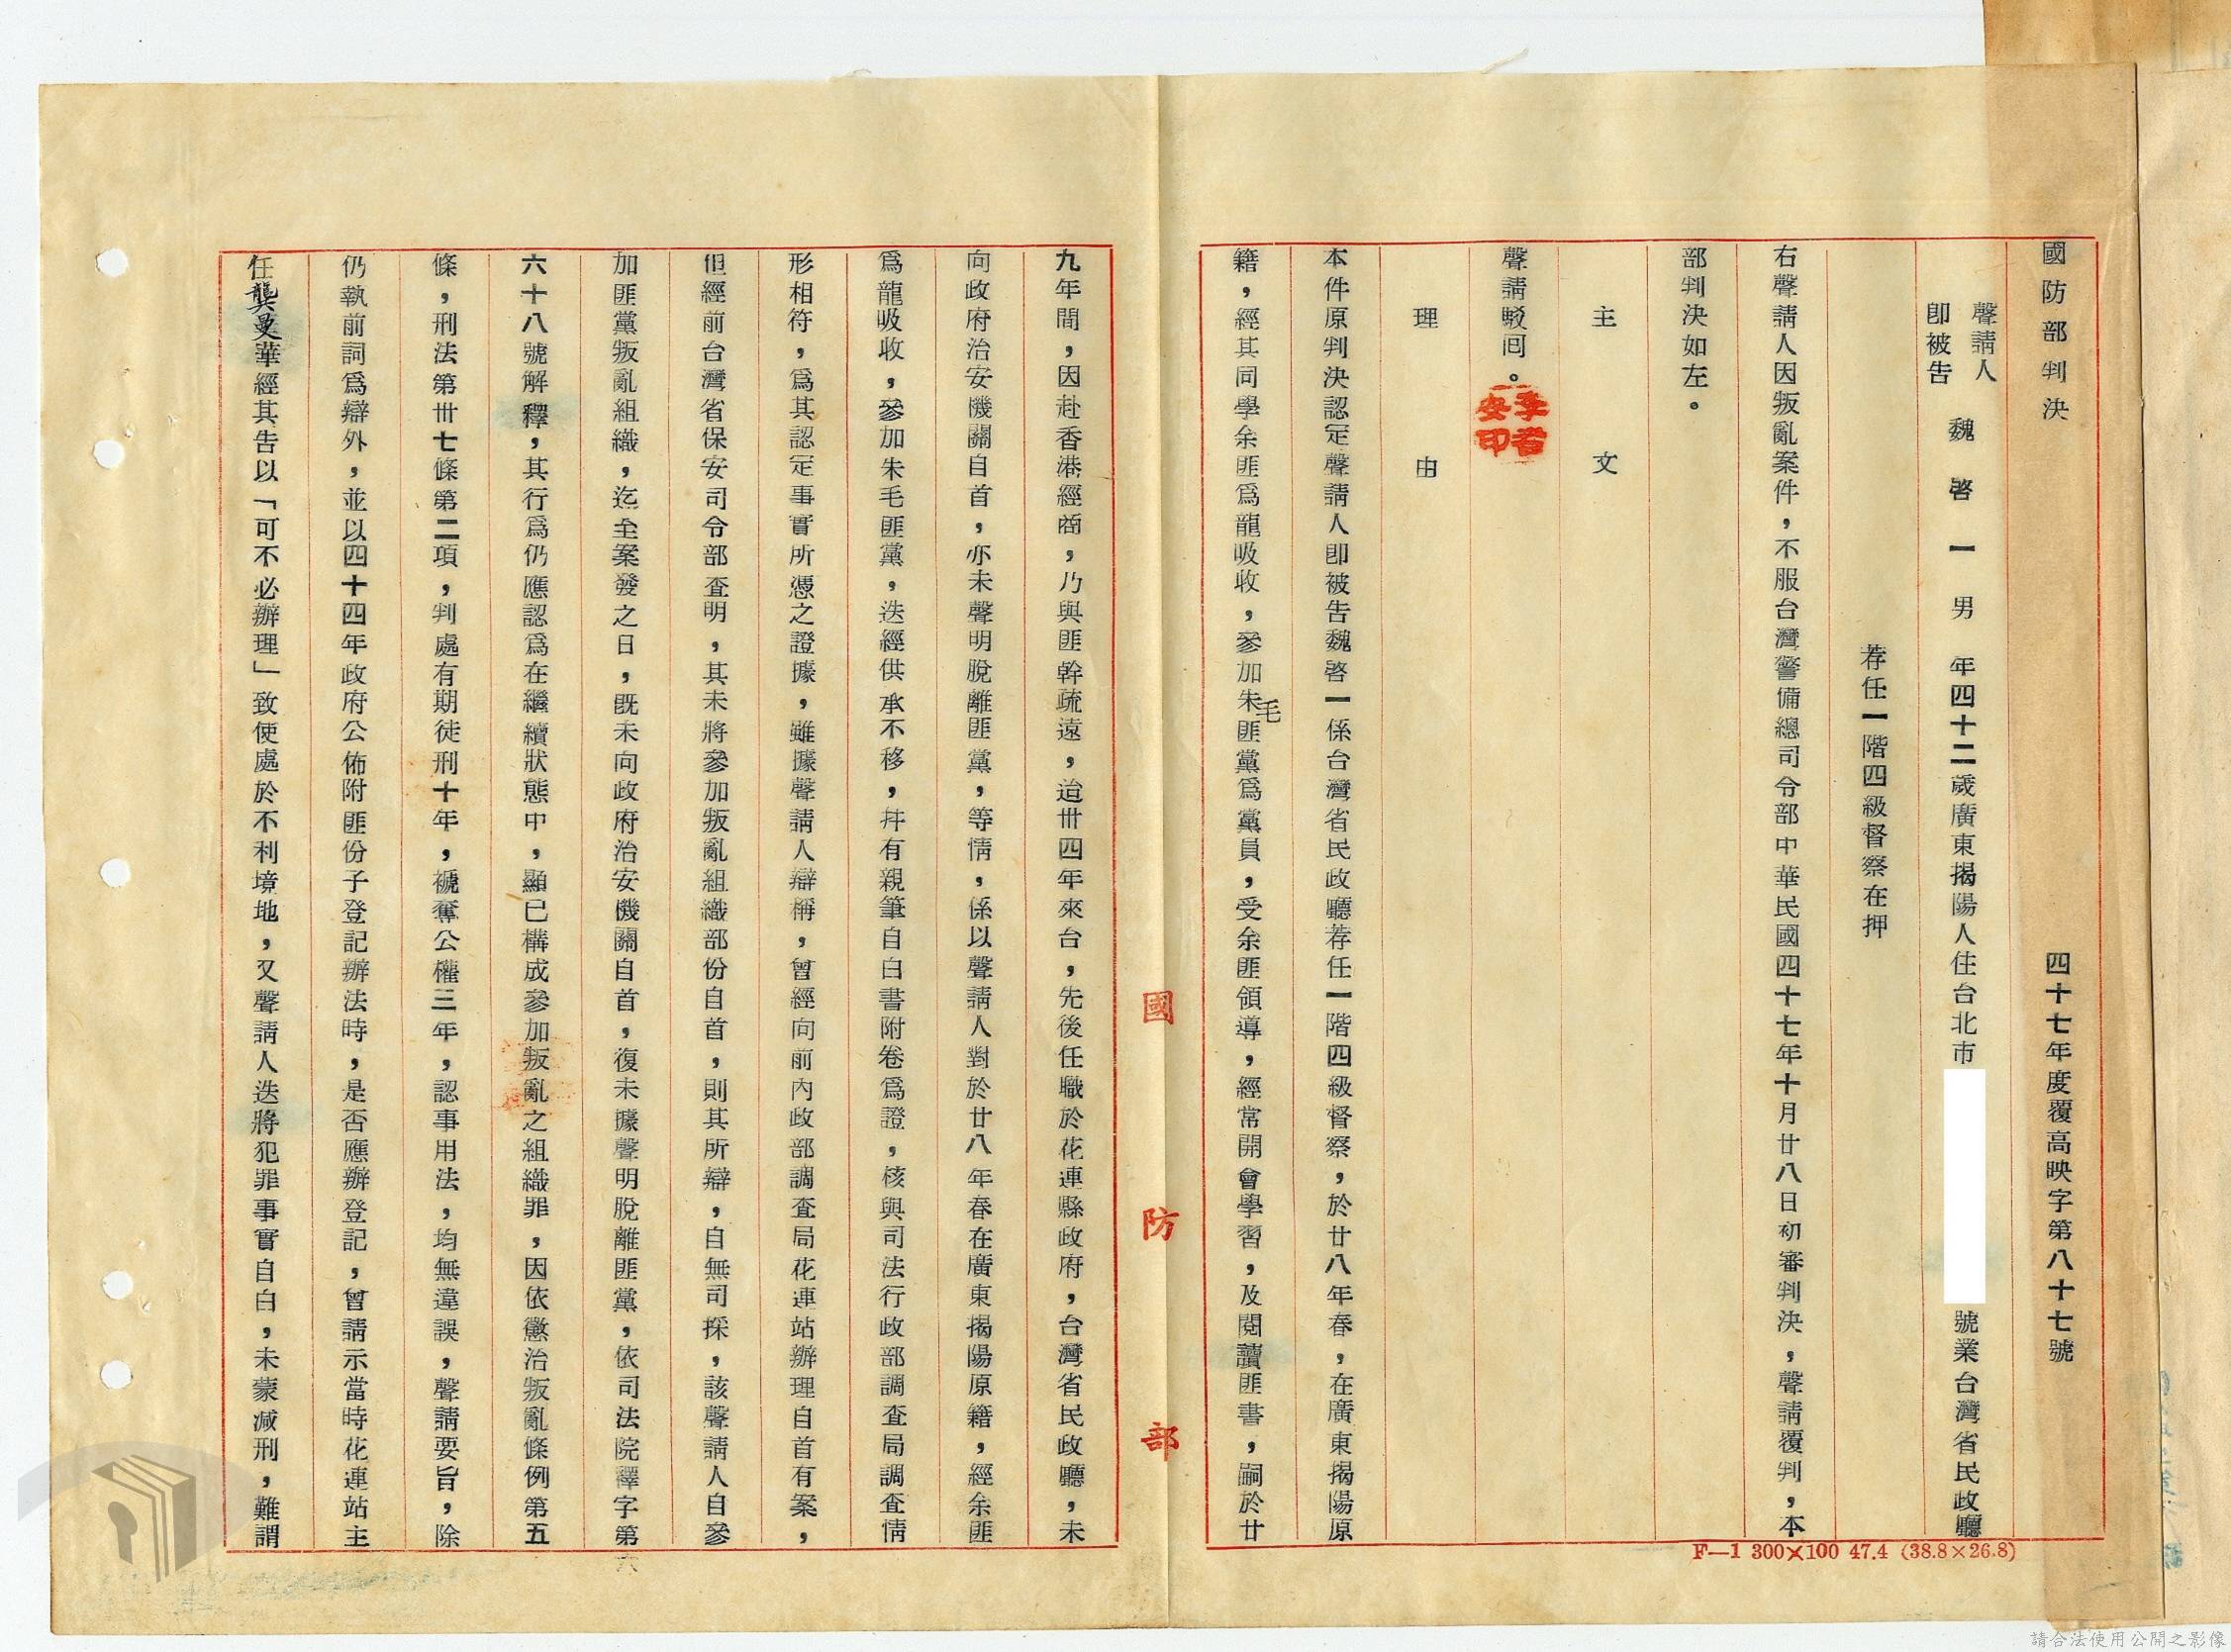 國防部判決　四十七年度覆高映字第八十七號
聲請人
即被告　魏啓一　男　年四十二歲廣東揭陽人住台北市　號業台灣省民政廳
荐任一階四級督察在押
右聲請人因叛亂案件，不服台灣警備總司令部中華民國四十七年十月廿八日初審判決，聲請覆判，本
部判決如左。
主文
聲請駁回。
理由
本件原判決認定聲請人即被告魏啓一係台灣省民政廳荐任一階四級督察，於廿八年春，在廣東揭陽原
籍，經其同學余匪爲龍吸收，參加朱毛匪黨爲黨員，受余匪領導，經常開會學習，及閱讀匪書，嗣於廿
九年間，因赴香港經商，乃與匪幹疏遠，迨卅四年來台，先後任職於花連縣政府，台灣省民政廳，未
向政府治安機關自首，亦未聲明脫離匪黨，等情，係以聲請人對於廿八年春在廣東揭陽原籍，經余匪
爲龍吸收，參加朱毛匪黨，迭經供承不移，幷有親筆自白書附卷爲證，核與司法行政部調查局調查情
形相符，爲其認定事實所憑之證據，雖據聲請人辯稱，曾經向前內政部調查局花連站辦理自首有案，
但經前台灣省保安司令部查明，其未將參加叛亂組織部份自首，則其所辯，自無司採，該聲請人自參
加匪黨叛亂組織，迄至案發之日，既未向政府治安機關自首，復未據聲明脫離匪黨，依司法院釋字第六
六十八號解釋，其行爲仍應認爲在繼續狀態中，顯已構成參加叛亂之組織罪，因依懲治叛亂條例第五
條，刑法第卅七條第二項，判處有期徒刑十年，褫奪公權三年，認事用法，均無違誤，聲請要旨，除
仍執前詞爲辯外，並以四十四年政府公佈附匪份子登記辦法時，是否應辦登記，曾請示當時花連站主
任龔曼華經其告以「可不必辦理」致使處於不利境地，又聲請人迭將犯罪事實自白，未蒙減刑，難謂
國防部
F—1 300×100 47.4 (38.8×26.8)
請合法使用公開之影像